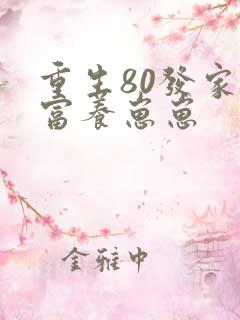 重生80發家
富養崽崽
金雅中